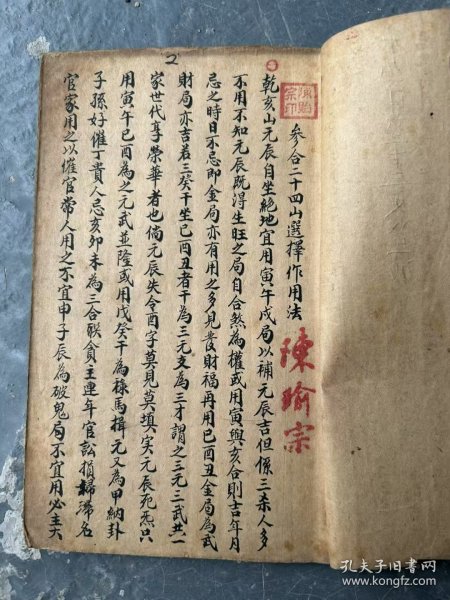 參合二十四山選擇作用法
陳瑜宗
乾亥山元辰自坐絶地宜用寅午戌局以補元辰吉但係三杀人多
不用不知元辰既淂生旺之局自合煞為權或用寅與亥合則吉年月
忌之時日不忌即金局亦有用之多見發財福再用巳酉丑全局為武
財局亦吉若三癸干坐巳酉丑者干為三元支為三才謂之三元三武共一
家世代享榮華者也倘元辰失令酉字莫見莫填实元辰死炁只
用寅午巳酉為之元武並隆或用戊癸干為祿馬揖元又為甲納卦
子孫好催丁貴人忌亥卯未為三合联貪主連年官訟損婦㳍名
官家用之以催官常人用之不宜申子辰為破鬼局不宜用必主大
2
孔夫子旧书网
www.kongfz.com